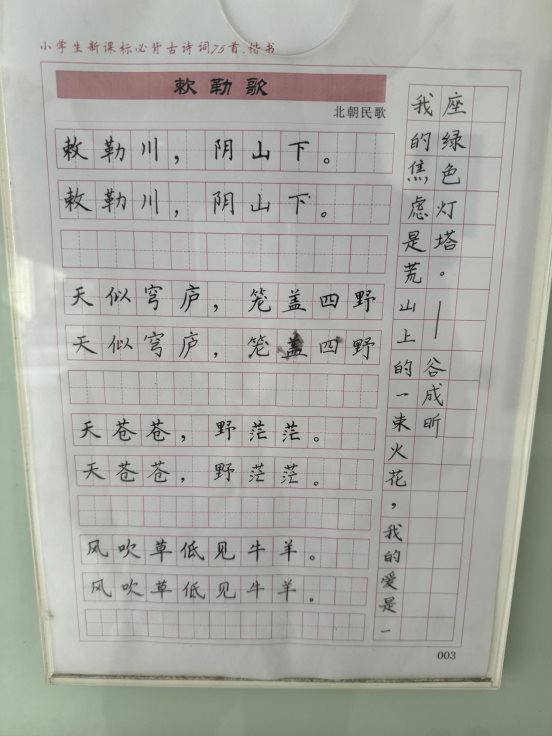 小学生新课标必背古诗词75首.楷书
敕勒歌
北朝民歌
敕勒川，阴山下。
敕勒川，阴山下。
天似穹庐，笼盖四野
天似穹庐，笼盖四野
天苍苍，野茫茫。
天苍苍，野茫茫。
风吹草低见牛羊。
风吹草低见牛羊。
我的焦虑是荒山上的一束火花，我的爱是一
座绿色灯塔。——谷成昕
003